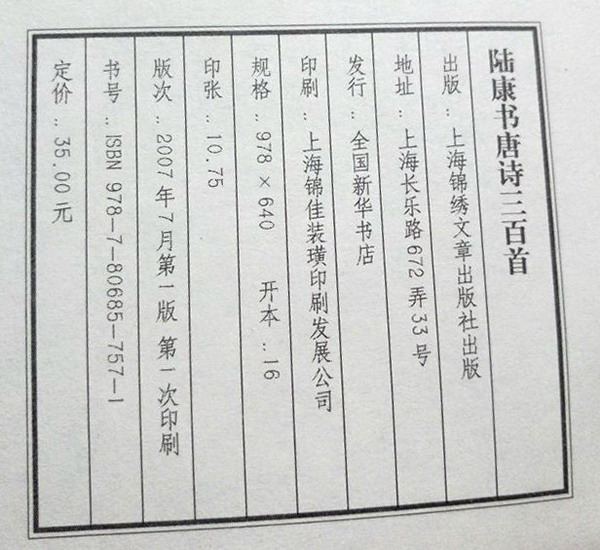 陆康书唐诗三百首
出版：上海锦绣文章出版社出版
地址：上海长乐路672弄33号
发行：全国新华书店
印刷：上海锦佳装璜印刷发展公司
规格：978×640 开本：16
印张：10.75
版次：2007年7月第一版 第一次印刷
书号：ISBN 978—7—80685—757—1
定价：35.00元